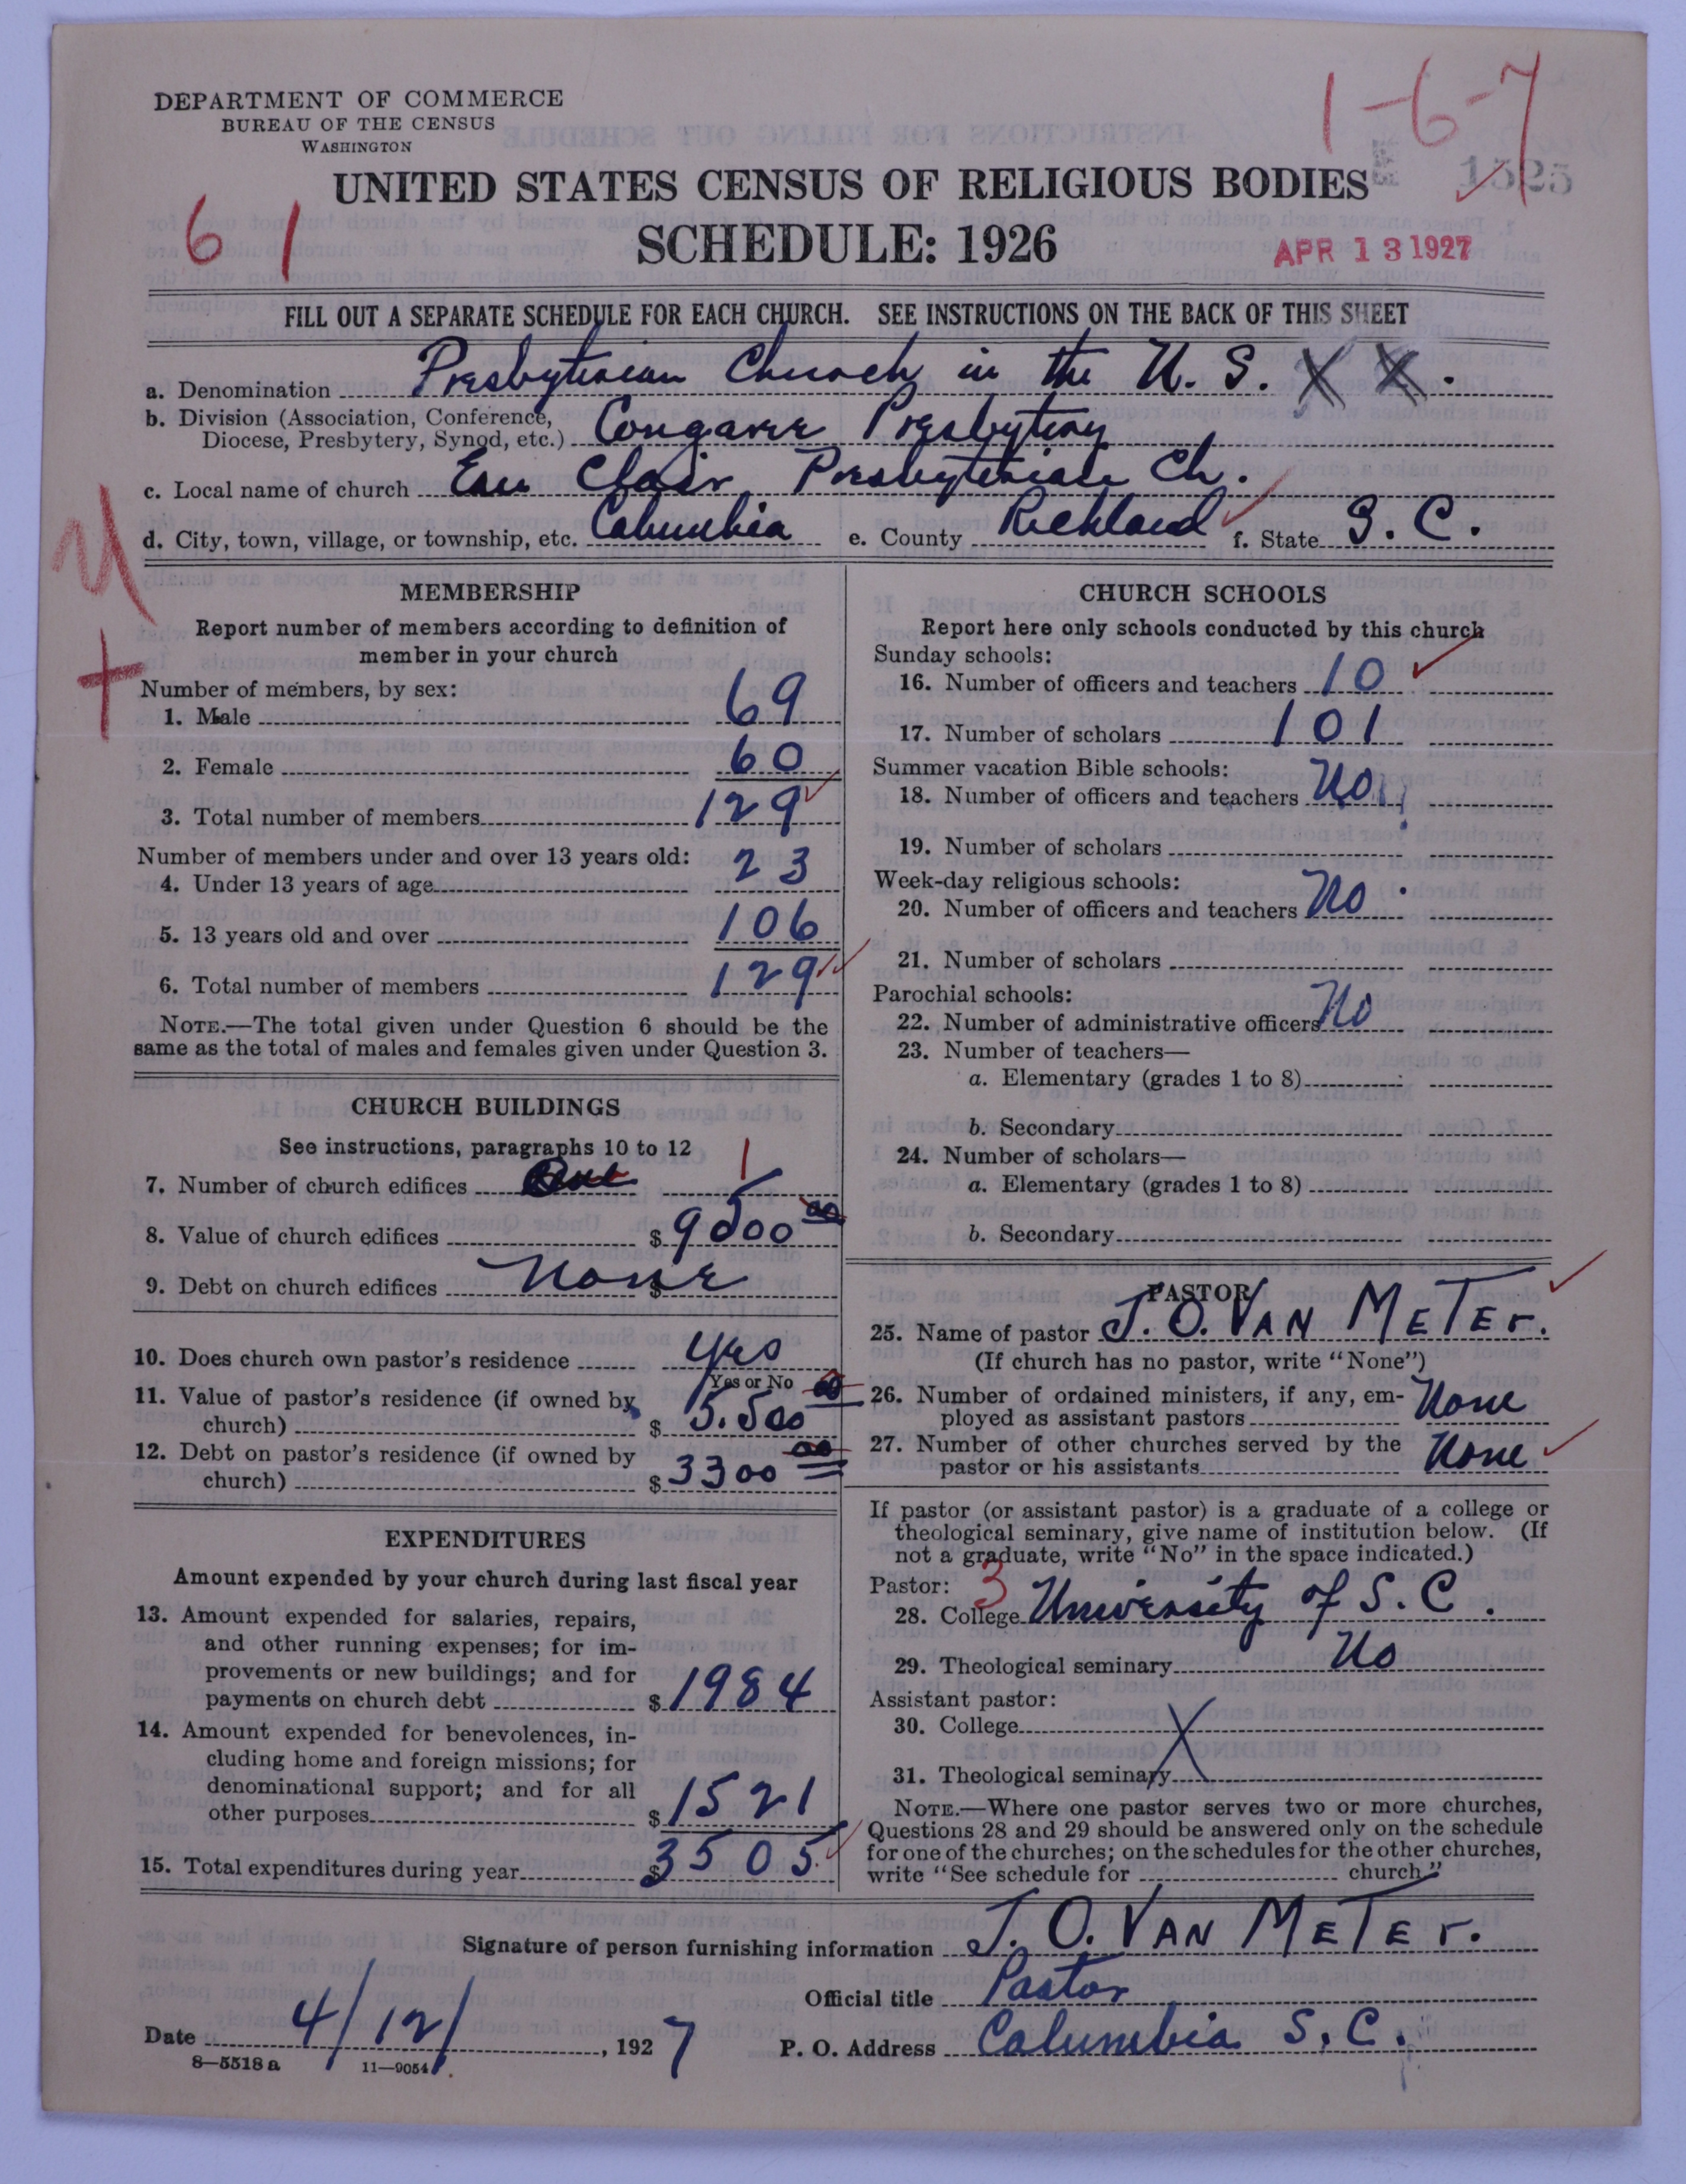 DEPARTMENT OF COMMERCE
BUREAU OF THE CENSUS
WASHINGTON
1-6-7
1525
UNITED STATES CENSUS OF RELIGIOUS BODIES
61
SCHEDULE: 1926
APR 13 1927
FILL OUT A SEPARATE SCHEDULE FOR EACH CHURCH. SEE INSTRUCTIONS ON THE BACK OF THIS SHEET
a. Denomination Presbyterian Church in the U. S. X X.
b. Division (Association, Conference,
Diocese, Presbytery, Synod, etc.) Congaree Presbytery
c. Local name of church Eau Clair Presbyterian Ch.
d. City, town, village, or township, etc. Columbia e. County Richland f. State S. C.
MEMBERSHIP
Report number of members according to definition of
member in your church
Number of members, by sex:
1. Male 69
2. Female 60
3. Total number of members 129
Number of members under and over 13 years old:
4. Under 13 years of age 23
5. 13 years old and over 106
6. Total number of members 129
NOTE.—The total given under Question 6 should be the
same as the total of males and females given under Question 3.
CHURCH BUILDINGS
See instructions, paragraphs 10 to 12
7. Number of church edifices One 1
8. Value of church edifices $9500 00
9. Debt on church edifices $ None
10. Does church own pastor's residence Yes
Yes or No
11. Value of pastor's residence (if owned by
church) $ 5.500 00
12. Debt on pastor's residence (if owned by
church) $ 3300 00
EXPENDITURES
Amount expended by your church during last fiscal year
13. Amount expended for salaries, repairs,
and other running expenses; for im-
provements or new buildings; and for
payments on church debt $ 1984
14. Amount expended for benevolences, in-
cluding home and foreign missions; for
denominational support; and for all
other purposes $ 1521
15. Total expenditures during year $ 3505
CHURCH SCHOOLS
Report here only schools conducted by this church
Sunday schools:
16. Number of officers and teachers 10
17. Number of scholars 101
Summer vacation Bible schools:
18. Number of officers and teachers No
19. Number of scholars
Week-day religious schools:
20. Number of officers and teachers No
21. Number of scholars
Parochial schools:
22. Number of administrative officers No
23. Number of teachers—
a. Elementary (grades 1 to 8)
b. Secondary
24. Number of scholars—
a. Elementary (grades 1 to 8)
b. Secondary
PASTOR
25. Name of pastor J. O. VAN METEr.
(If church has no pastor, write "None")
26. Number of ordained ministers, if any, em-
ployed as assistant pastors None
27. Number of other churches served by the
pastor or his assistants None
If pastor (or assistant pastor) is a graduate of a college or
theological seminary, give name of institution below. (If
not a graduate, write "No" in the space indicated.)
Pastor: 3
28. College University of S. C.
29. Theological seminary No
Assistant pastor:
30. College X
31. Theological seminary
NOTE.—Where one pastor serves two or more churches,
Questions 28 and 29 should be answered only on the schedule
for one of the churches; on the schedules for the other churches,
write "See schedule for church."
Signature of person furnishing information J. O. VAN METEr.
Official title Pastor
Date 4/12/, 1927 P. O. Address Columbia S. C.
8—5518 a 11—9054